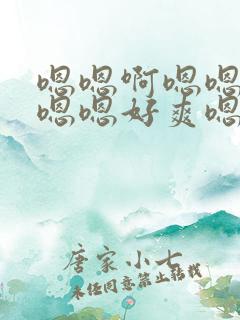 嗯嗯啊嗯嗯
嗯嗯好爽嗯
唐家小七
未经同意禁止转载